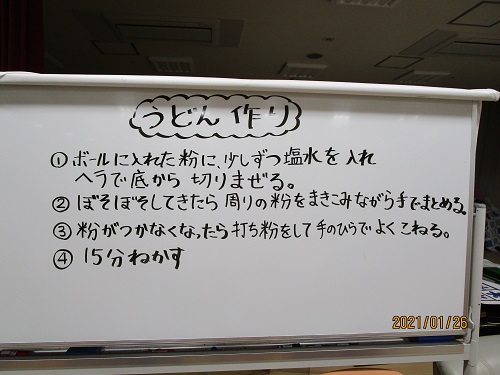 うどん作り
① ボールに入れた粉に、少しずつ塩水を入れ
ヘラで底から切りまぜる。
② ぼそぼそしてきたら周りの粉をまきこみながら手でまとめる。
③ 粉がつかなくなったら打ち粉をして手のひらでよくこねる。
④ 15分ねかす
2021/01/26